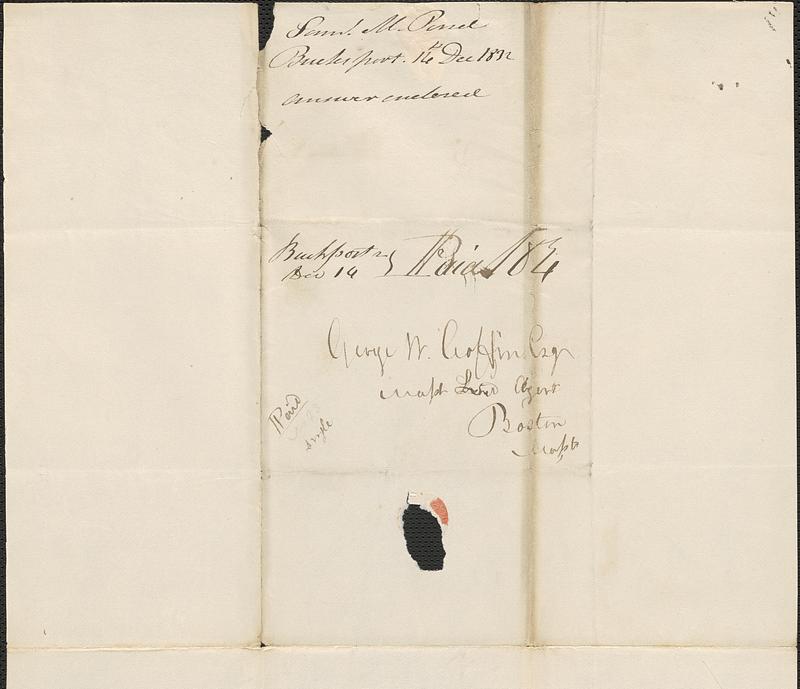 Saml. M. Pond
Bucksport. 14th Dec 1832
answer enclosed
Buckport
Dec 14 } Paid 18¾
George W. Coffin Esqr
Masst Land Agent
Boston
Masst
Paid
single